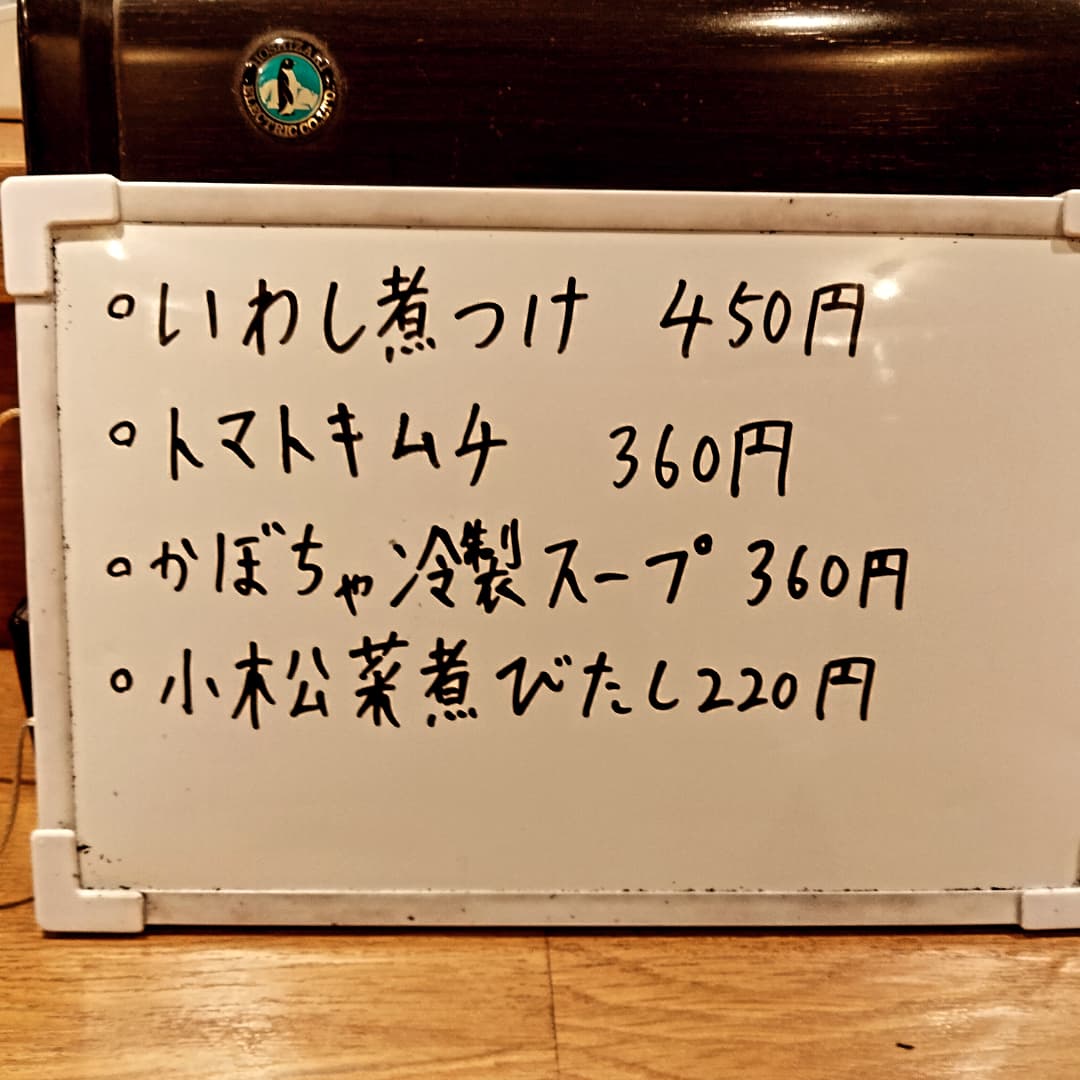 HOSHIZAKI ELECTRIC CO.,LTD.
°いわし煮つけ 450円
°トマトキムチ 360円
°かぼちゃ冷製スープ 360円
°小松菜煮びたし220円